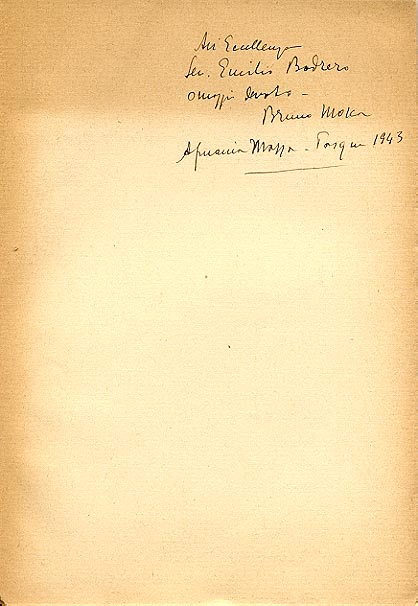 All'Eccellenza
Sen. Emilio Bodrero
omaggio devoto -
Bruno Moka
Apuania Massa - Pasqua 1943